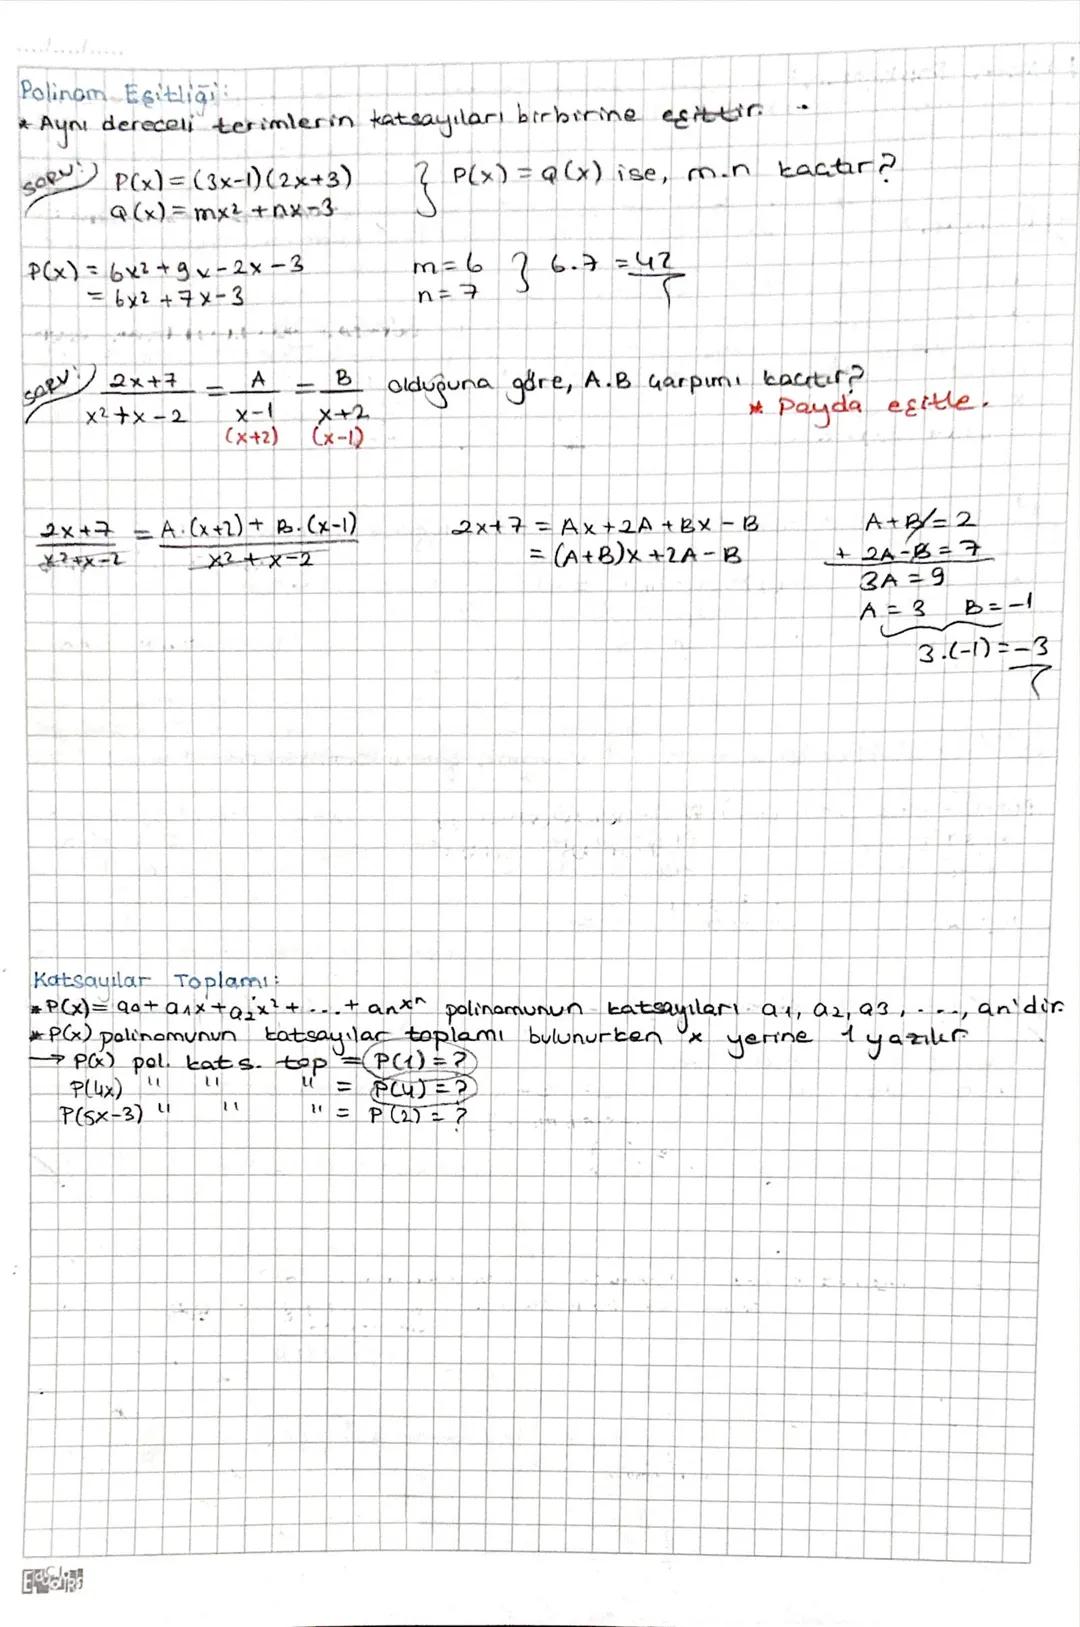 Polinom Eşitliği:
* Aynı dereceli terimlerin katsayıları birbirine eşittir.
SORU: P(x) = (3x-1)(2x+3) } P(x) = Q(x) ise, m.n kaçtır?
Q(x) = mx² + nx - 3
P(x) = 6x² + 9x - 2x - 3 m = 6 } 6.7 = 42
= 6x² + 7x - 3 n = 7
SORU: 2x+7 / x²+x-2 = A / x-1 - B / x+2 olduğuna göre, A.B çarpımı kaçtır?
(x+2) (x-1) * Payda eşitle.
2x+7 / x²+x-2 = A.(x+2) + B.(x-1) / x²+x-2 2x+7 = Ax+2A+Bx-B A+B = 2
= (A+B)x+2A-B + 2A-B = 7
3A = 9
A = 3 B = -1
3.(-1) = -3
Katsayılar Toplamı:
* P(x) = a0 + a1x + a2x² + ... + anxⁿ polinomunun katsayıları a1, a2, a3, ..., an'dir.
* P(x) polinomunun katsayılar toplamı bulunurken x yerine 1 yazılır.
→ P(x) pol. kats. top = P(1) = ?
P(4x) " " " = P(4) = ?
P(5x-3) " " " = P(2) = ?